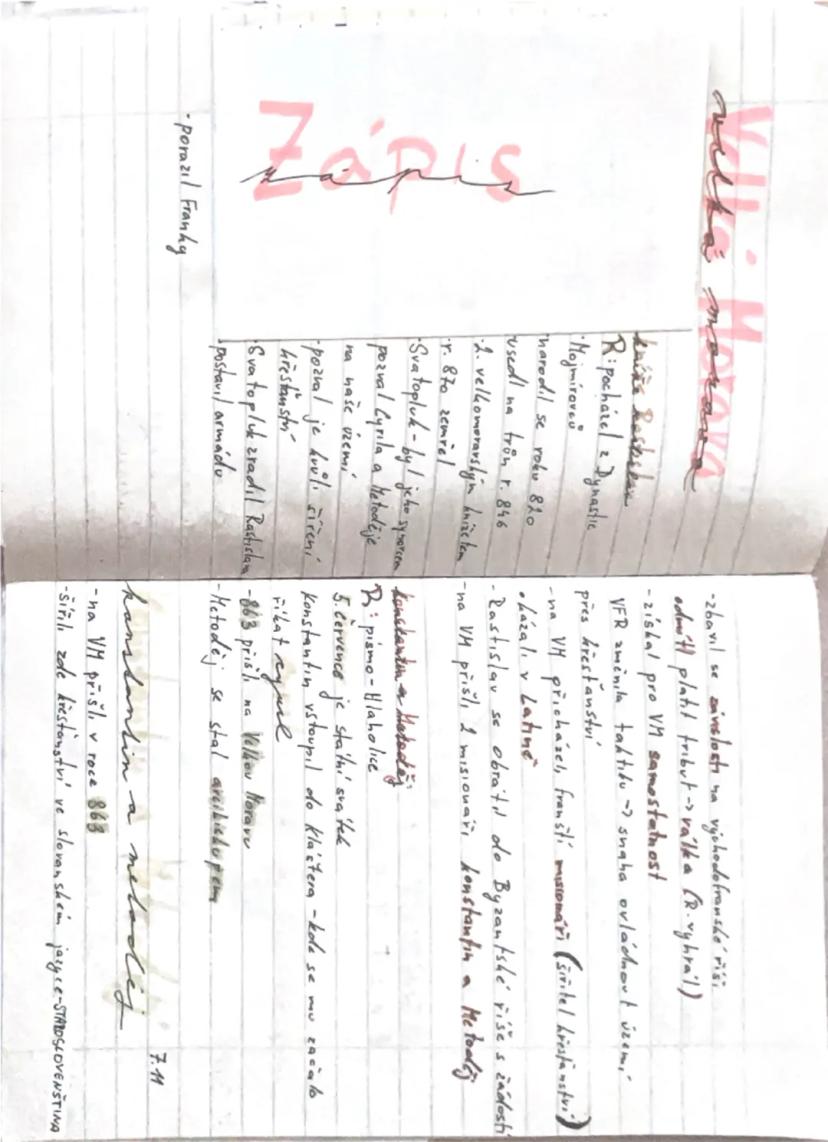 Velká Morava
velká morava
Zápis
zápis
kníže Rastislav
R: pocházel z Dynastie
Mojmírovců
·narodil se roku 820
usedl na trůn r. 846
·2. velkomoravským knížetem
·r. 870 zemřel
·Svatopluk - byl jeho synovcem
pozval Cyrila a Metoděje
na naše území
·pozval je kvůli šíření
křesťanství
·Svatopluk zradil Rastislava
·postavil armádu
·porazil Franky
-zbavil se závislosti na východofranské říši
odmítl platit tribut → válka (R. vyhrál)
-získal pro VM samostatnost
VFR změnila taktiku → snaha ovládnout území
přes křesťanství
-na VM přicházel, franští misionáři (šiřitel křesťanství)
·kázali v Latině
·Rastislav se obrátil do Byzantské říše s žádostí
-na VM přišli 2 misionáři konstantin a Metoděj
konstantin a Metoděj:
R: písmo - Hlaholice
5. července je státní svátek
konstantin vstoupil do kláštera - kde se mu začalo
říkat cyril
-863 přišli na Velkou Moravu
-Metoděj se stal arcibiskupem
konstantin a metoděj
7.11
-na VM přišli v roce 863
-šířili zde křesťanství ve slovanském jazyce-STAROSLOVĚNŠTINA